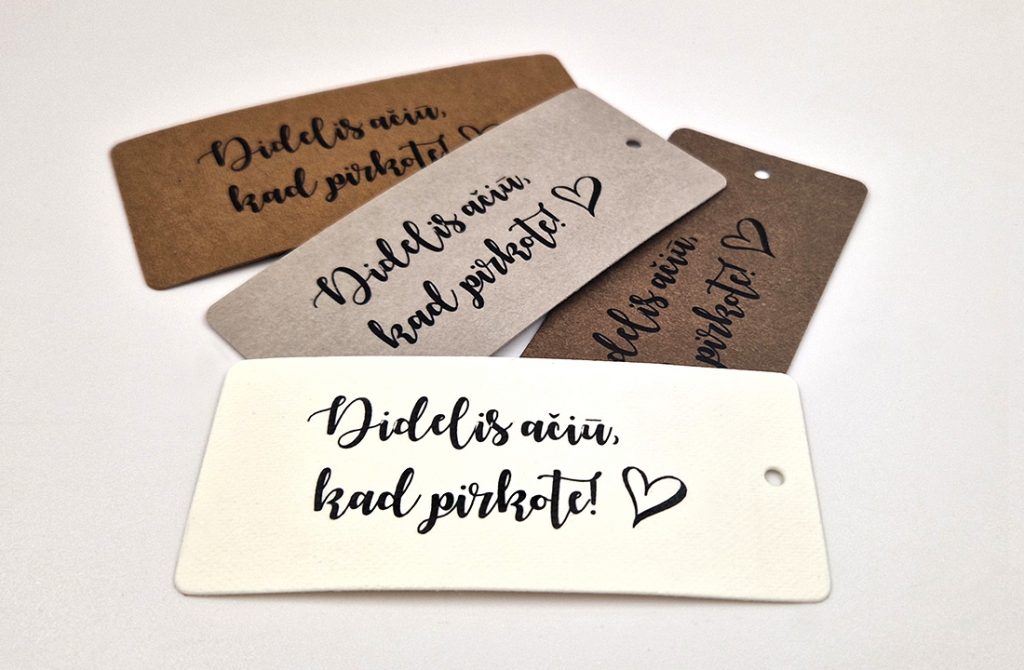 Didelis ačiū,
kad pirkote!
Didelis ačiū,
kad pirkote!
delis ačiū,
pirkote!
Didelis ačiū,
kad pirkote!